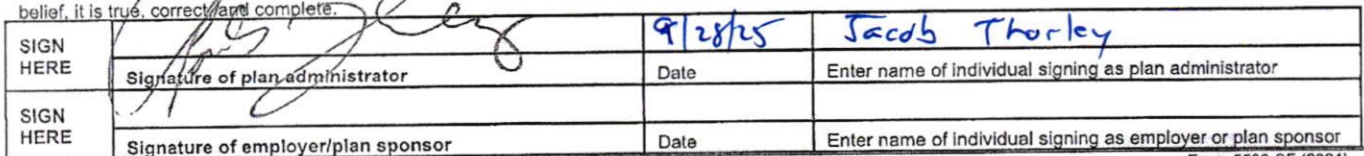 belief, it is true, correct, and complete.
SIGN HERE 9/28/25 Jacob Thorley
Signature of plan administrator Date Enter name of individual signing as plan administrator
SIGN HERE
Signature of employer/plan sponsor Date Enter name of individual signing as employer or plan sponsor